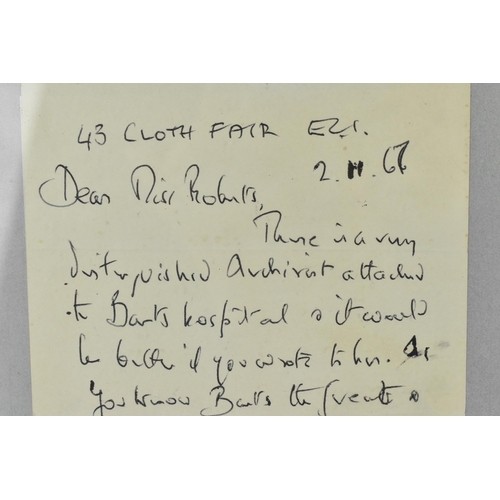 43 CLOTH FAIR EC1.
2.11.66
Dear Miss Roberts,
There is a very
distinguished Archivist attached
to Barts hospital & it would
be better if you wrote to her. As
you know Barts the Great &